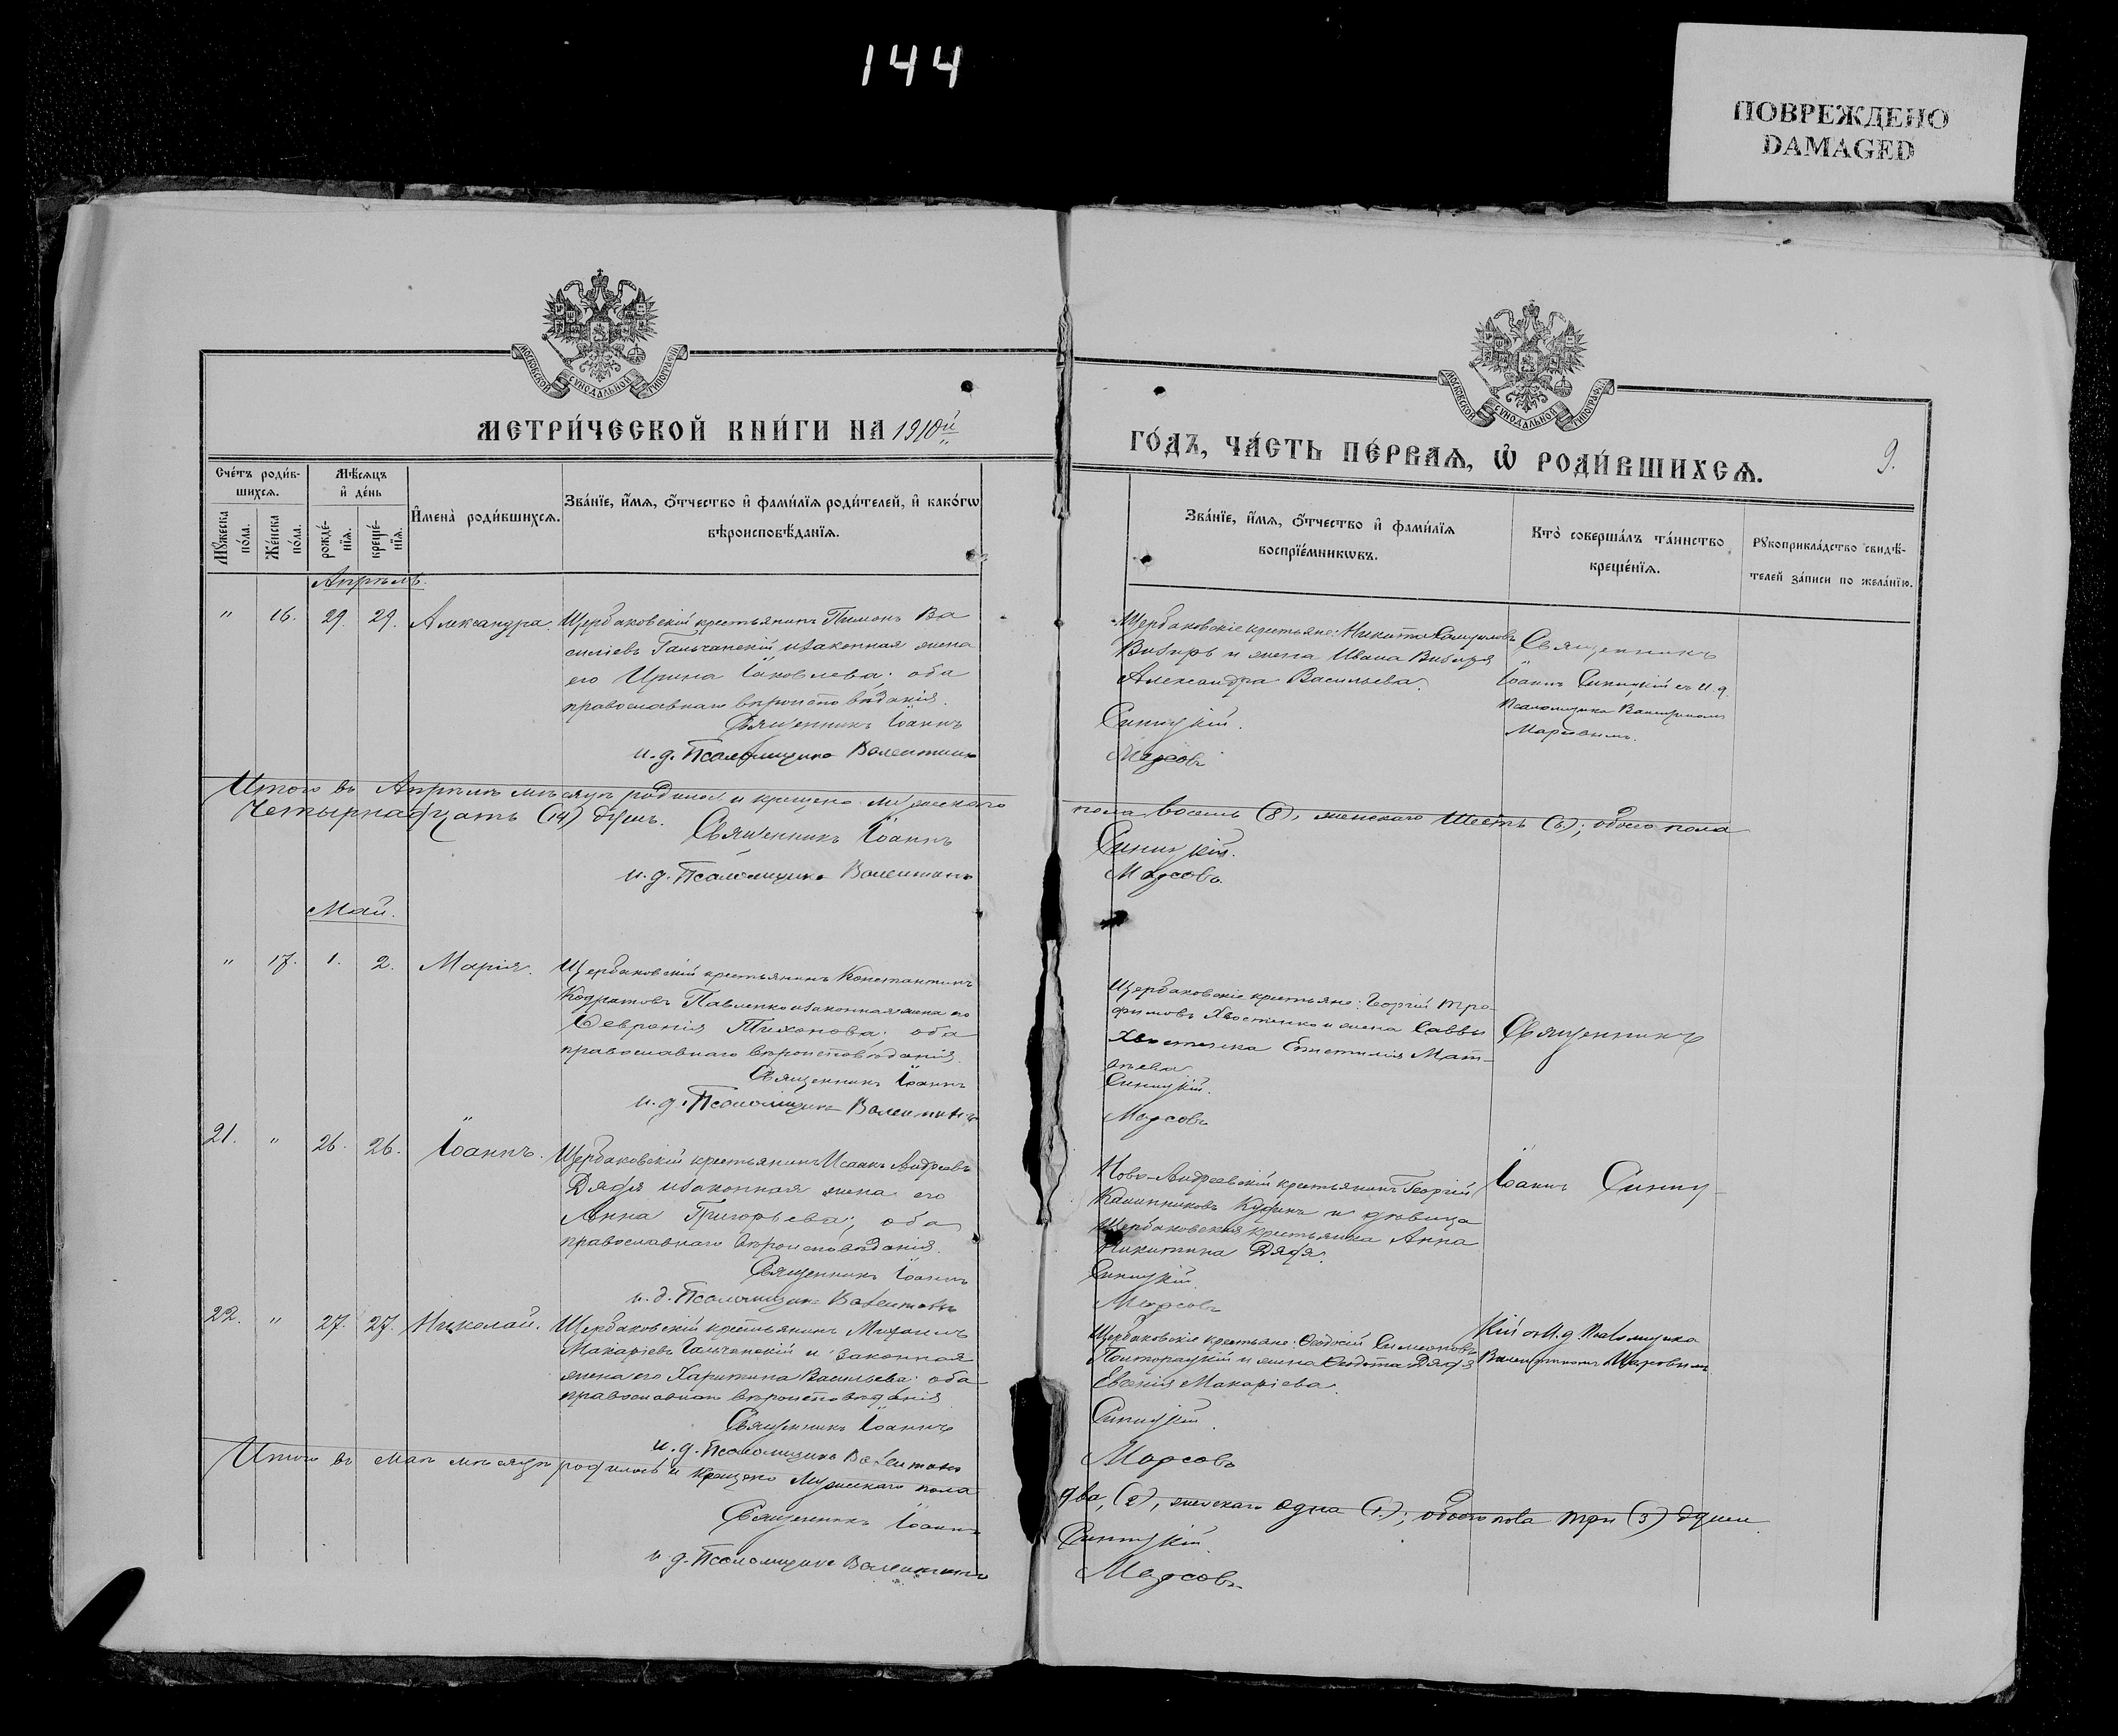 144
ПОВРЕЖДЕНО
DAMAGED
МОСКОВСКОЙ СѴНОДАЛЬНОЙ ТИПОГРАФІИ
МОСКОВСКОЙ СѴНОДАЛЬНОЙ ТИПОГРАФІИ
МЕТРИ́ЧЕСКОЙ КНИ́ГИ НА 1910й
ГО́ДЪ, ЧА́СТЬ ПЕ́РВАѦ, Ѡ҆ РОДИ́ВШИХСѦ.
9.
Сче́тъ роди́в-
шихсѧ.
Мѣ́сѧцъ
и҆ де́нь
Мꙋ́жеска
по́ла.
Же́нска
по́ла.
рожде́-
нїѧ.
креще́-
нїѧ.
И҆мена̀ роди́вшихсѧ.
Зва́нїе, и҆́мѧ, ѻ҆́тчество и҆ фами́лїѧ роди́телей, и҆ како́гѡ
вѣроисповѣ́данїѧ.
Зва́нїе, и҆́мѧ, ѻ҆́тчество и҆ фами́лїѧ
воспрїе́мникѡвъ.
Кто̀ соверша́лъ та́инство
креще́нїѧ.
Рꙋкоприкла́дство свидѣ́-
телей за́писи по жела́нїю.
Апрѣль.
" 16. 29. 29. Александра.
Щербаковскій крестьянинъ Пимонъ Ва
силіевъ Гальчанскій и законная жена
его Ирина Іаковлева; оба
православнаго вѣроисповѣданія.
Священникъ Іоаннъ
и. д. Псаломщика Валентинъ
Щербаковскіе крестьяне: Никита
и жена Ивана
Александра Васильева.
Синицкій.
Марсовъ
Священникъ
Іоаннъ Синицкій съ и. д.
Псаломщика Валентиномъ
Марсовымъ.
Итого въ Апрѣлѣ мѣсяцѣ родилось и крещено мужескаго
пола восемь (8), женскаго шесть (6); обоего пола
Четырнадцать (14) душъ.
Священникъ Іоаннъ
Синицкій.
и. д. Псаломщика Валентинъ
Марсовъ.
Май.
" 17. 1. 2. Марія.
Щербаковскій крестьянинъ Константинъ
Кодратовъ Павленко и законная жена его
Февронія Тихонова; оба
православнаго вѣроисповѣданія.
Священникъ Іоаннъ
и. д. Псаломщика Валентинъ
Щербаковскіе крестьяне: Георгій Тро
фимовъ Хвостенко и жена Саввы
Хвостенка Епистимія Мат-
ѳѣева
Синицкій.
Марсовъ
Священникъ
21. " 26. 26. Іоаннъ.
Щербаковскій крестьянинъ Исаакъ Андреевъ
Дядя и законная жена его
Анна Григорьева; оба
православнаго вѣроисповѣданія.
Священникъ Іоаннъ
и. д. Псаломщика Валентинъ
Ново-Андреевскій крестьянинъ Георгій
Калинниковъ и дѣвица
Щербаковская крестьянка Анна
Никитина Дядя.
Синицкій
Марсовъ
Іоаннъ Синиц-
22. " 27. 27. Николай.
Щербаковскій крестьянинъ Михаилъ
Макаріевъ Гальчанскій и законная
жена его Харитина Васильева; оба
православнаго вѣроисповѣданія
Священникъ Іоаннъ
и. д. Псаломщика Валентинъ
Щербаковскіе крестьяне: Ѳеодосій Симеоновъ
Полторацкій и жена Ѳедота Дядя
Евгенія Макаріева.
Синицкій
Марсовъ
кій съ И. д. Псаломщика
Валентиномъ Марсовымъ
Итого въ маѣ мѣсяцѣ родилось и крещено мужескаго пола
два (2), женскаго одна (1); обоего пола три (3) души.
Священникъ Іоаннъ
Синицкій.
и. д. Псаломщика Валентинъ
Марсовъ